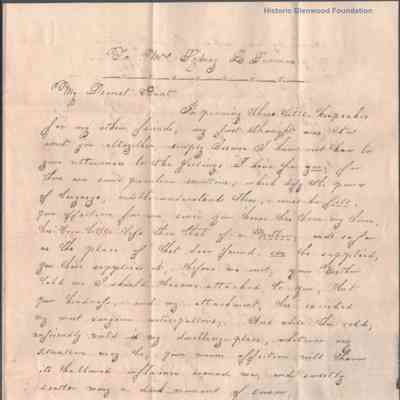 Historic Glenwood Foundation
To Mrs
My Dearest Aunt
In penning these little keepsakes
for my other friends, my first thought was to
omit you altogether simply because I knew not how to
give utterance to the feelings I have for you; for
there are some peculiar emotions, which defy the power
of language, and to understand them, must be felt.
Your affection for me ever since you knew me
has been little less than that of a Mother, and so far
as the place of that dear friend can be supplied,
you have supplied it. Before we met, your
told me I should become attached to you, that
your kindness, and my attachment, has exceeded
my most sanguine anticipations. And while the cold,
unfriendly world is my dwelling-place, whatever my
situation may be, your warm affection will throw
its hallowed influence around me, and sweetly
soothe many a dark moment of